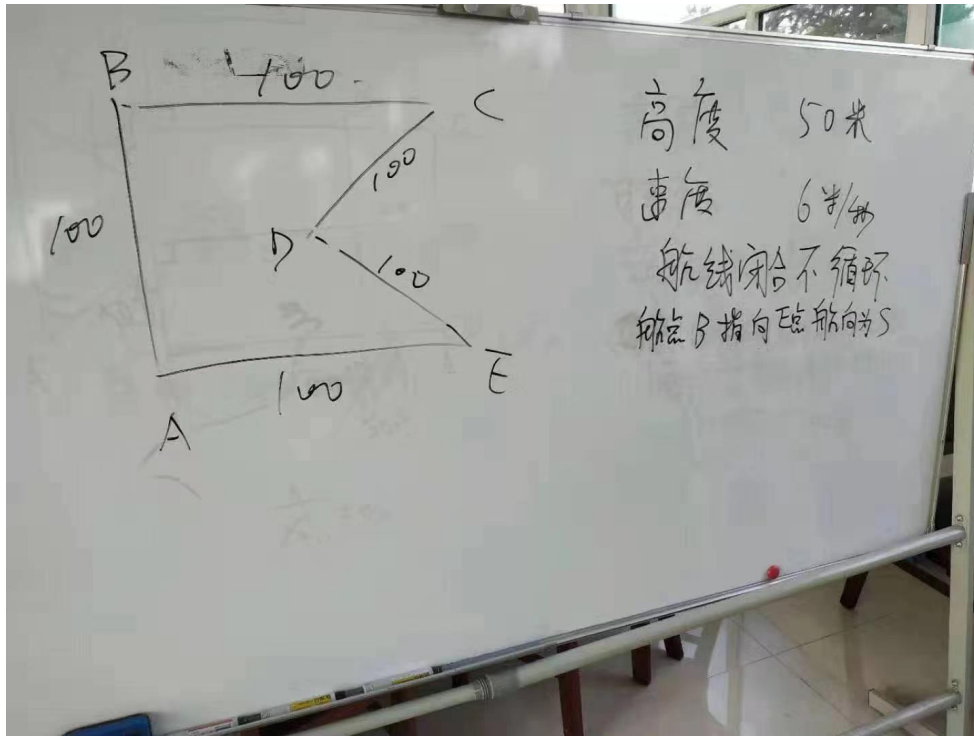 B
100
C
100
100
D
100
100
E
A
高度 50米
速度 6米/秒
航线闭合不循环
航点B指向E点航向为S